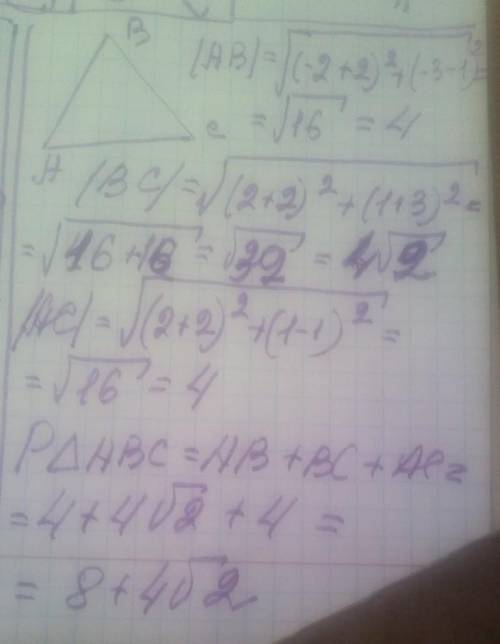 B
|AB| = √(-2+2)² + (-3-1)² =
= √16 = 4
A
C
|BC| = √(2+2)² + (1+3)² =
= √16+16 = √32 = 4√2
|AC| = √(2+2)² + (1-1)² =
= √16 = 4
P△ABC = AB + BC + AC =
= 4 + 4√2 + 4 =
= 8 + 4√2